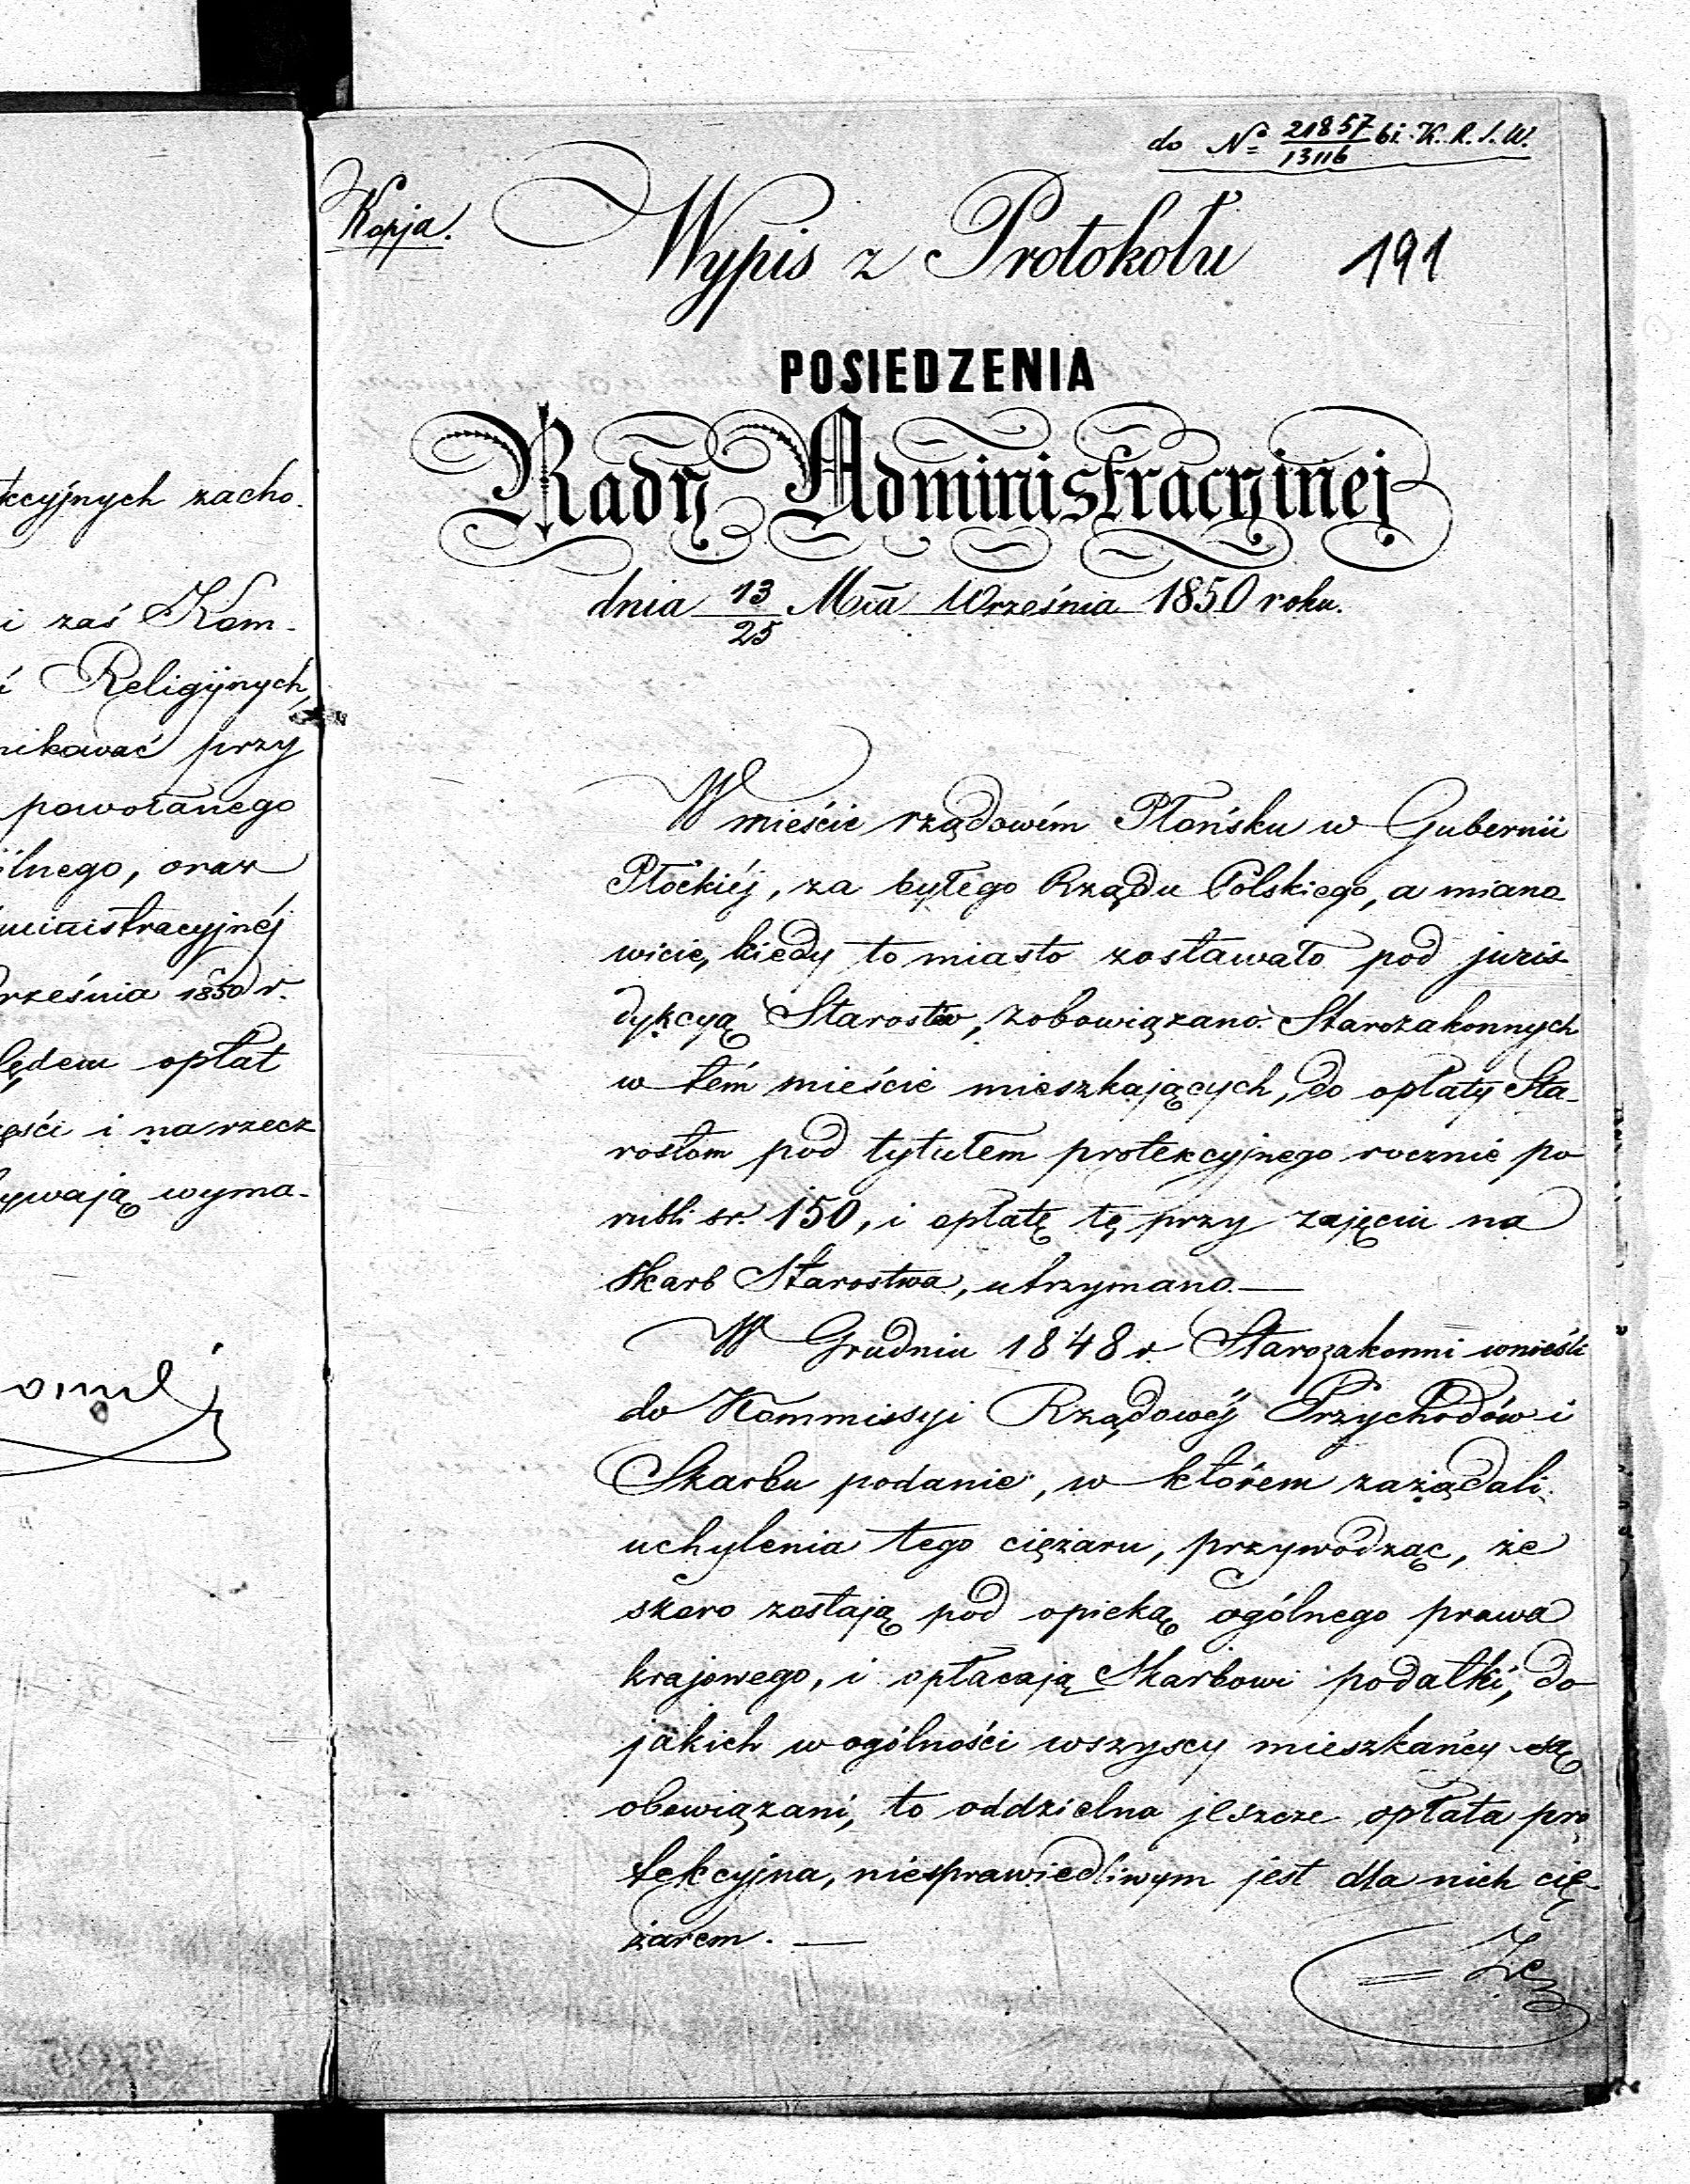 kcyjnych zacho-
i zaś Kom-
i Religijnych,
nikować przy
powołanego
ólnego, oraz
ministracyjnéj
rześnia 1850 r.
lędem opłat
ęści i na rzecz
ywają wyma-
do No 21857/13116 bi. K. R. S. W.
Kopja.
Wypis z Protokołu 191
POSIEDZENIA
Rady Administracyinej
dnia 13/25 Mca Września 1850 roku.
W mieście rządowém Płońsku w Gubernii
Płockiéj, za byłego Rządu Polskiego, a miano
wicie, kiedy to miasto zostawało pod juris-
dykcyą Starostów, zobowiązano Starozakonnych
w tém mieście mieszkających, do opłaty Sta-
rostom pod tytułem protekcyjnego rocznie po
rubli sr. 150, i opłatę tę przy zajęciu na
Skarb Starostwa, utrzymano. —
W Grudniu 1848 r. Starozakonni wnieśli
do Kommissyi Rządowéj Przychodów i
Skarbu podanie, w którem zażądali
uchylenia tego ciężaru, przywodząc, że
skoro zostają pod opieką ogólnego prawa
krajowego, i opłacają Skarbowi podatki, do
jakich w ogólności wszyscy mieszkańcy są
obowiązani, to oddzielna jeszcze opłata pro
tekcyjna, niesprawiedliwym jest dla nich cię-
żarem. —
= Ze